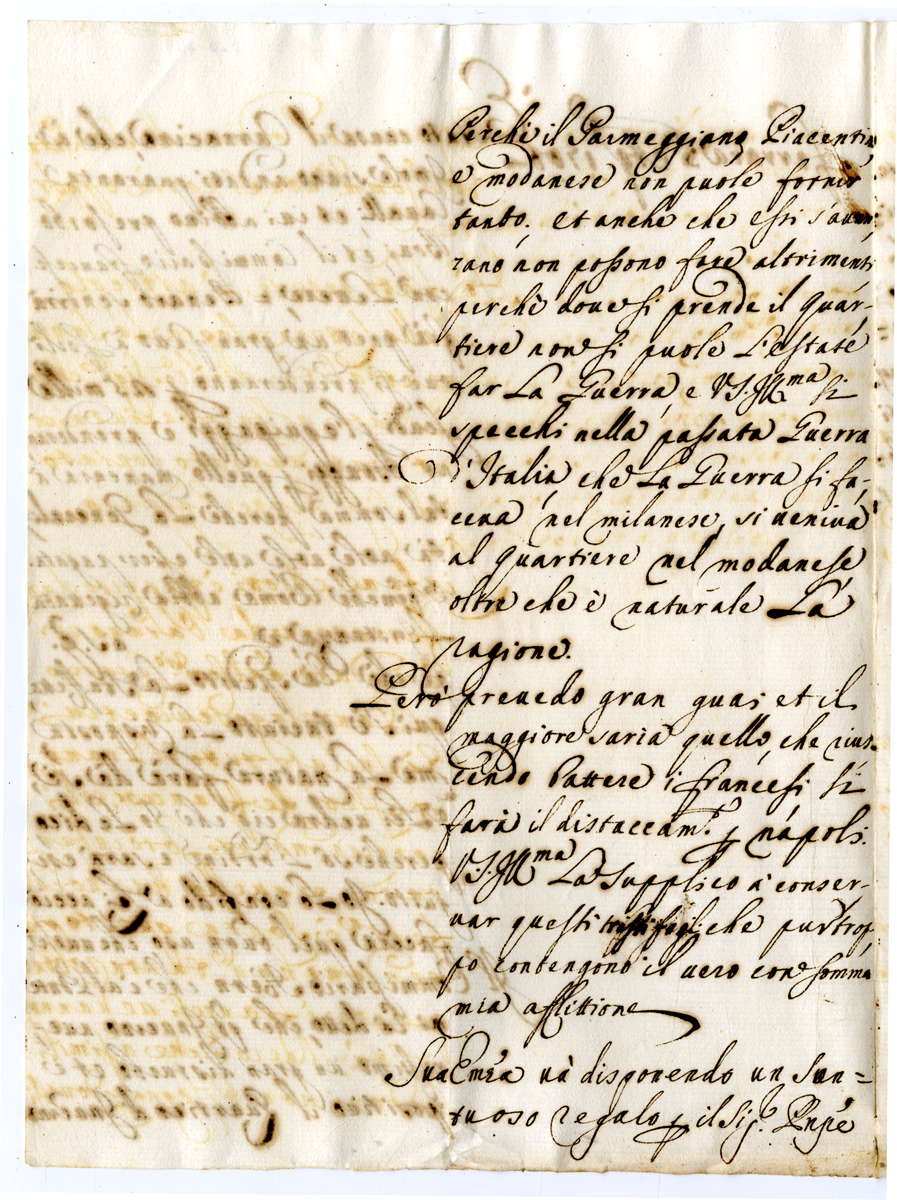 Perche il Parmeggiano Piacentin
e modanese non puole fornir
tanto. et anche che essi s'auan
zano non possono fare altrimenti
perche doue si prende il quar-
tiere non si puole L'estate
far La Guerra e VS. Jllma si
specchi nella passata Guerra
d'Italia che La Guerra si fa-
ceua nel milanese, si veniua
al quartiere nel modanese
oltre che è naturale La
ragione.
Però preuedo gran guai et il
maggiore saria quello, che rius-
cendo battere i francesi si
farà il distaccam.to p napoli.
V.S. Jllma La supplico à conser-
uar questi tristi fogli che purtrop
po contengono il uero con somma
mia afflittione
Sua Emza uà disponendo un sun=
tuoso regalo p il Sig.r Pnpe